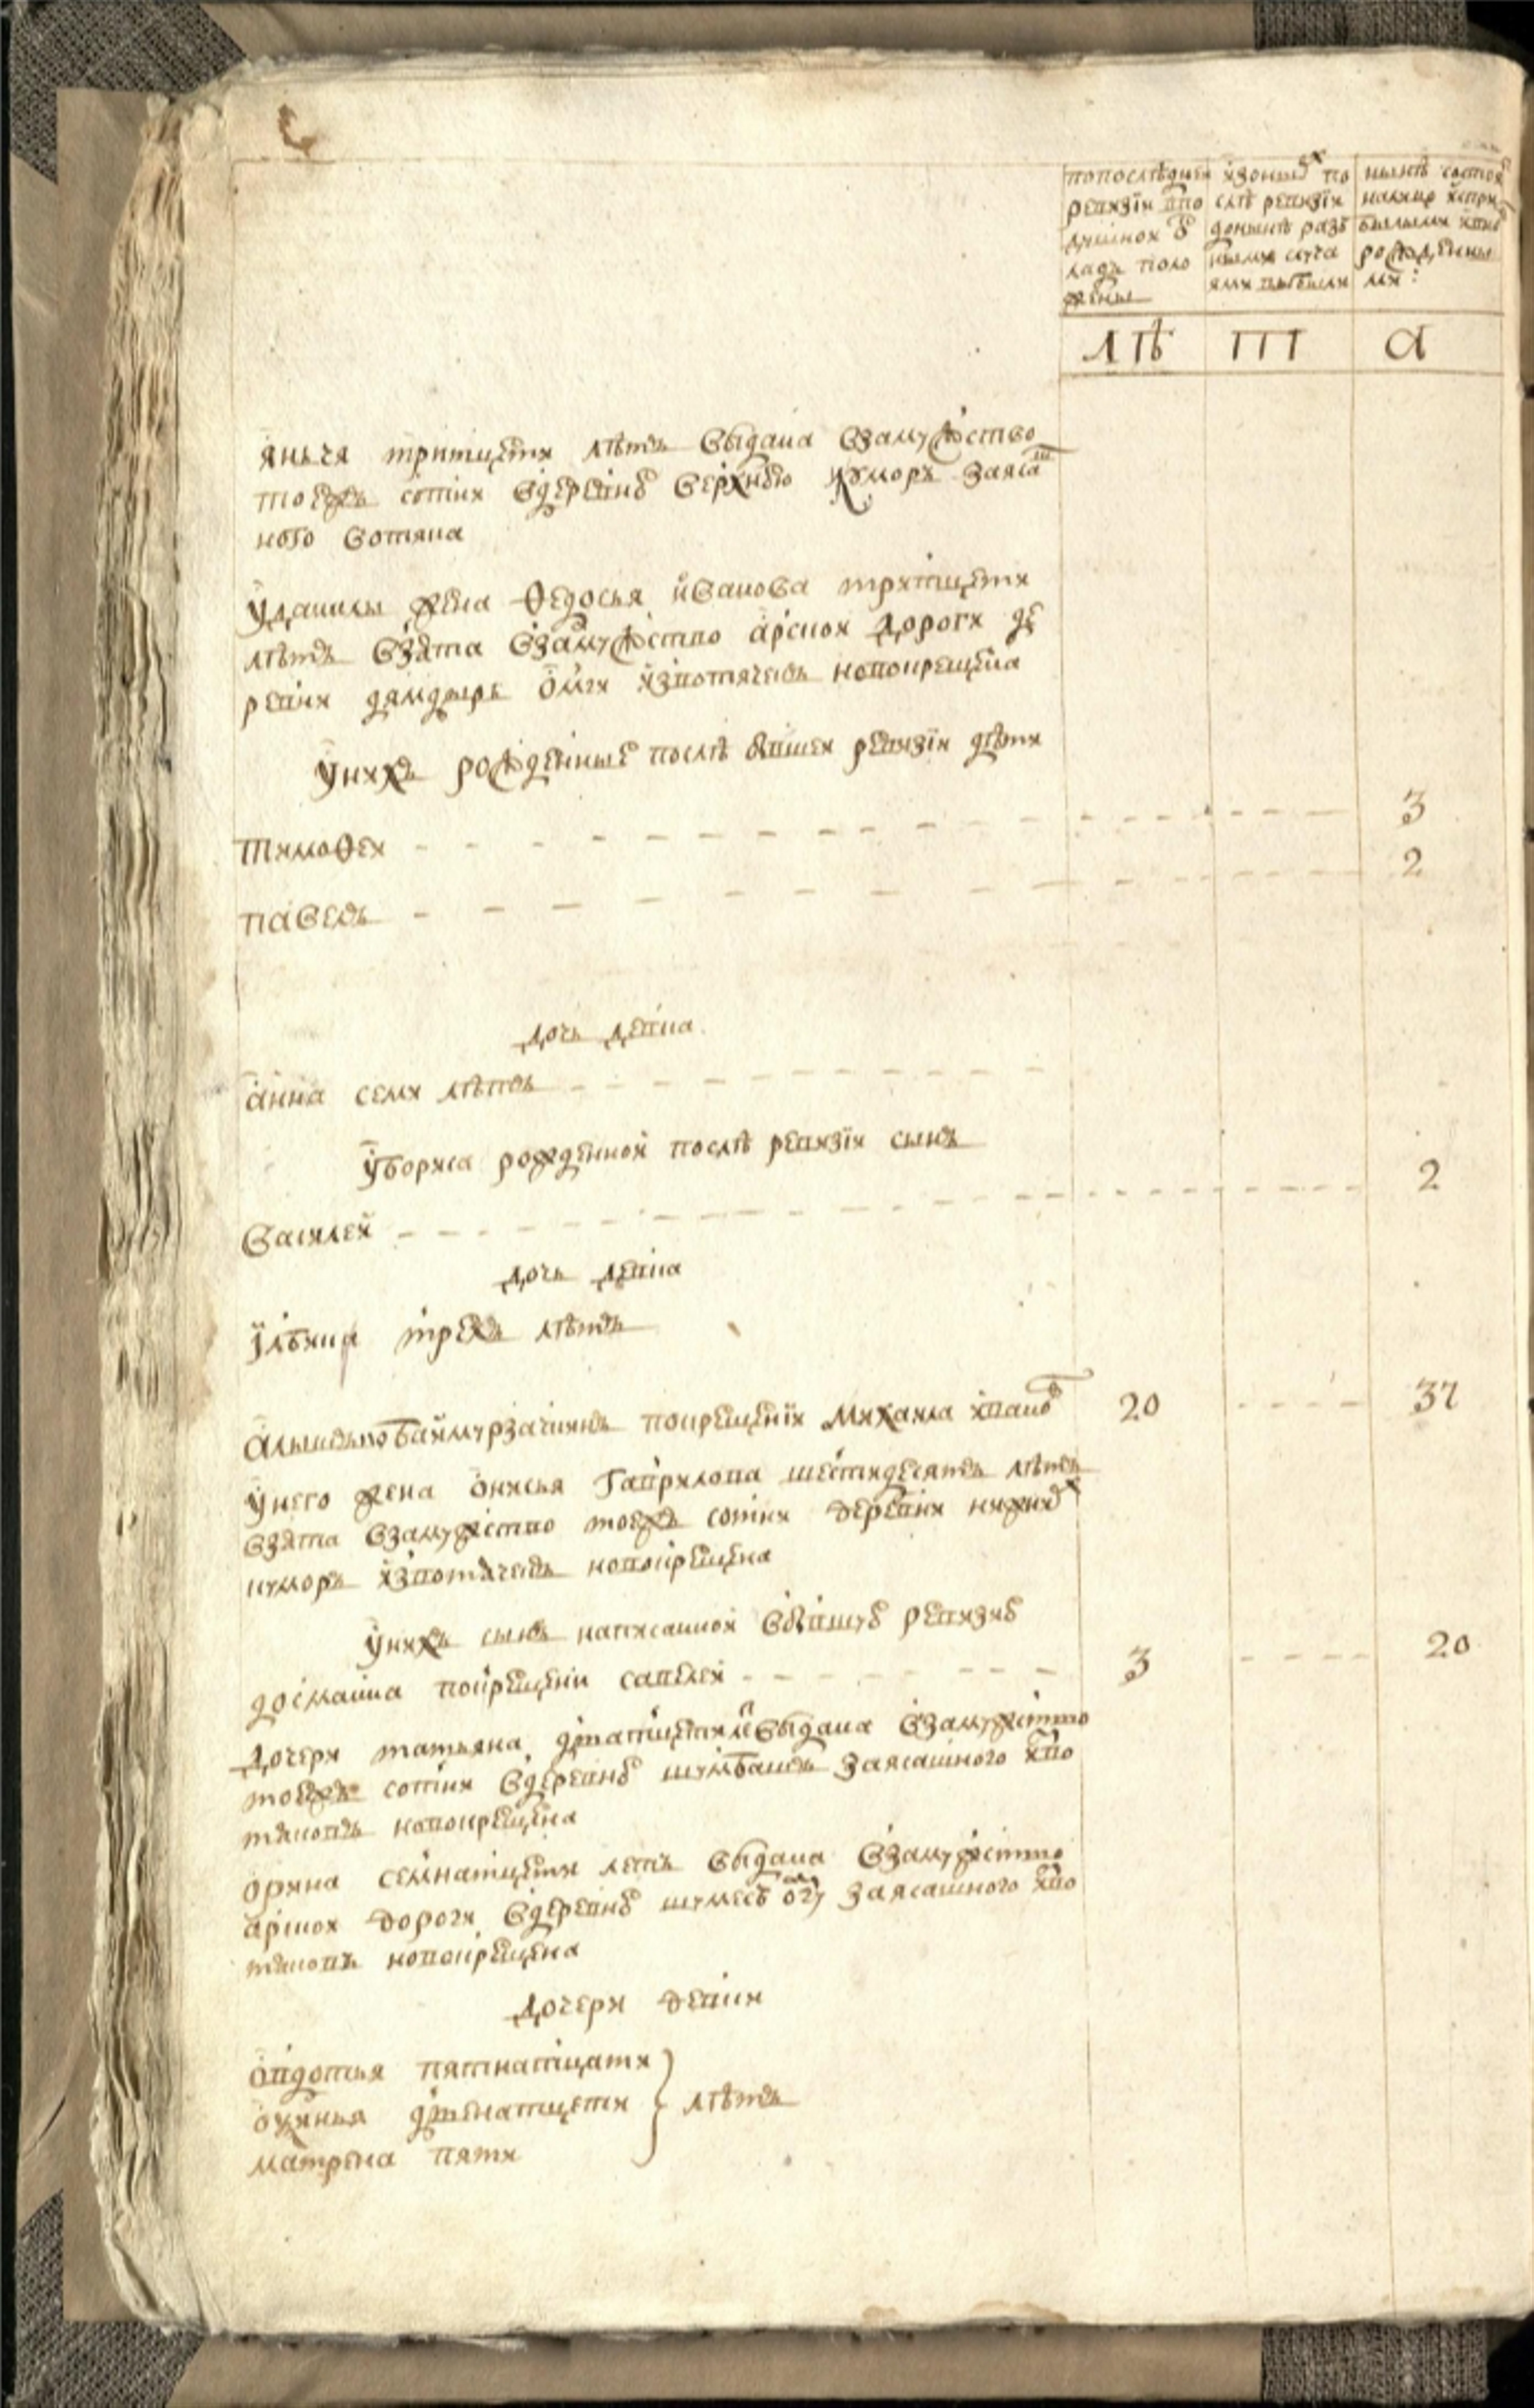 по последнеи
ревизiи в по
душнои о
кладъ поло
жены
изоных по
слѣ ревизiи
донынѣ разъ
ными случа
ями выбыли
нынѣ состоя
налицо испри
былыми и вно
рожденны
ми:
лѣ
т
а
янъчя тритцети лѣтъ выдана взамужство
тоежъ сотни вдеревню верхнюю куморъ заяса
ного вотяка
Уданилы жена Ѳедосья иванова тритцети
лѣтъ взята взамужство арскои дороги де
ревни дямдыръ омги извотяковъ новокрещена
Унихъ рожденные послѣ бывшеи ревизiи дѣти
тимоѳеи 3
павелъ 2
дочь девка
анна семи лѣтъ
Убориса рожденнои послѣ ревизiи сынъ
василей 2
дочь девка
Ульяна трехъ лѣтъ
баймурзачинъ вокрещенiи михаила иванов 20 37
Унего жена онисья гаврилова шестидесятъ лѣтъ
взята взамужство тоежъ сотни деревни нижних
куморъ извотяковъ новокрещена
Унихъ сынъ написаннои вбывшую ревизию
досманка вокрещени савелеи 3 20
дочери татьяна дватцети выдана взамужство
тоежъ сотни вдеревню шумбашъ заясашного изво
тяковъ новокрещена
орина семнатцети летъ выдана взамужство
арскои дороги вдеревню заясашного изво
тяковъ новокрещена
дочери девки
овдотья пятнатцати
окулинья двенатцети лѣтъ
матрена пяти